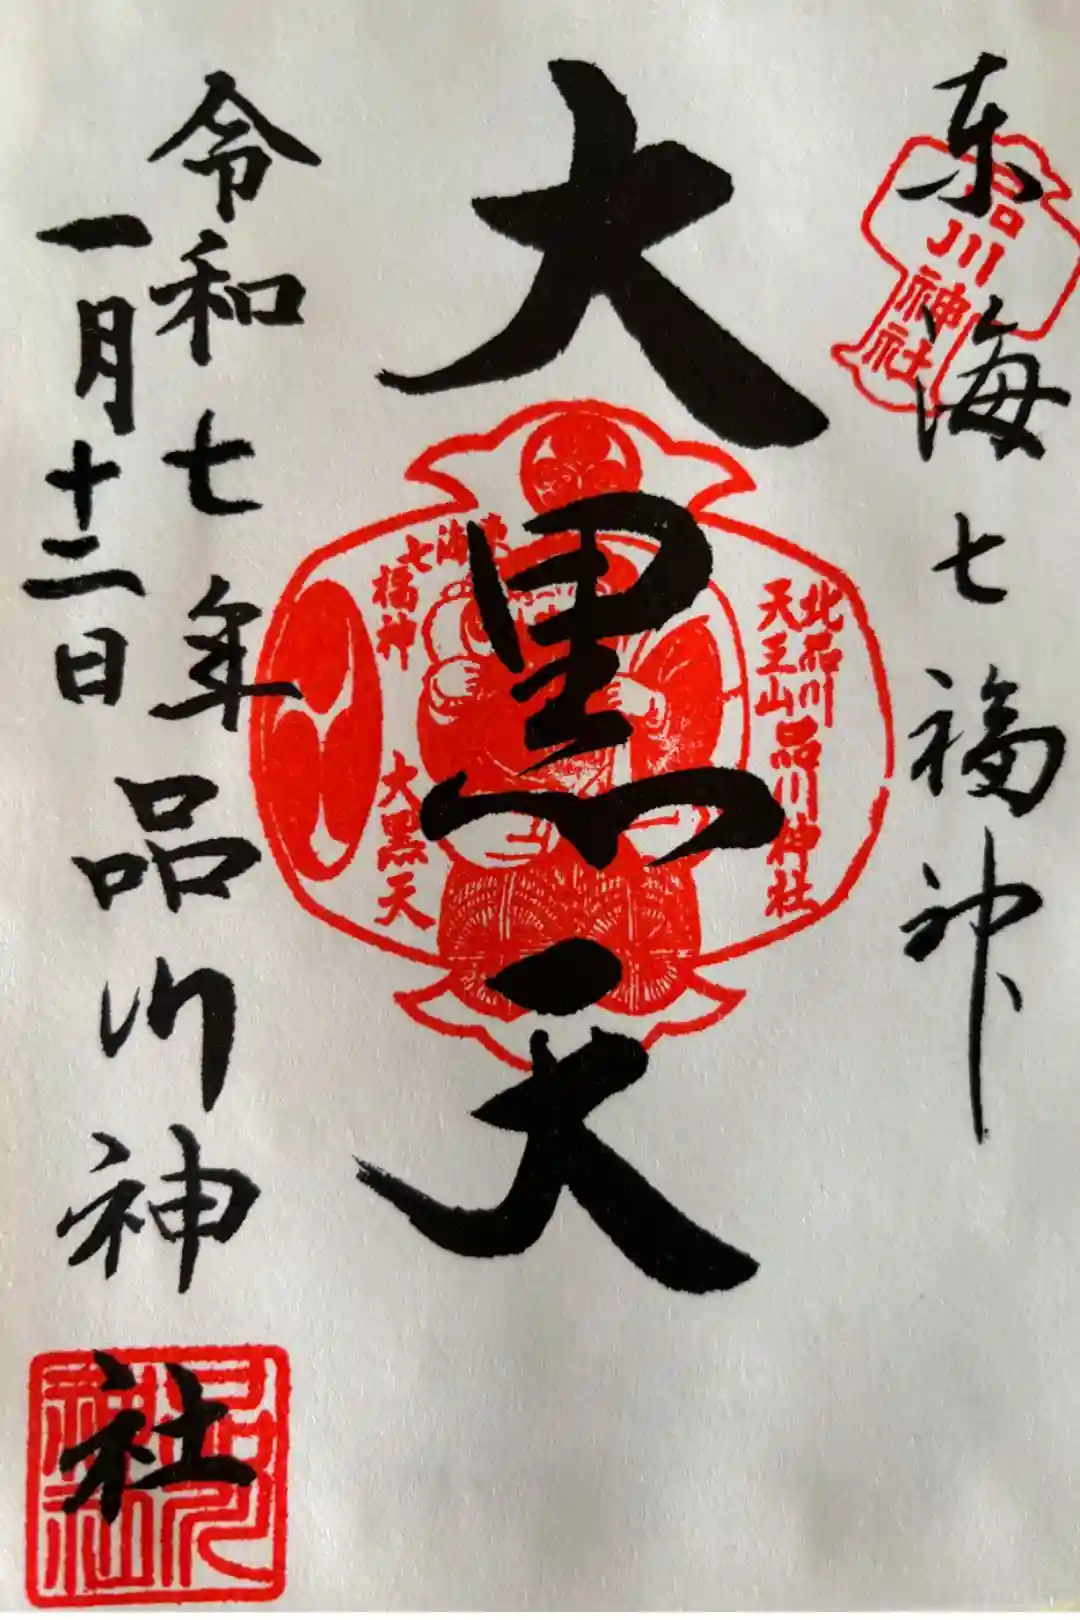 东海七福神
品川神社
大黒天
東海
七福神
大黒天
北品川
天王山
品川神社
令和七年
一月十二日
品川神社
品川
神社